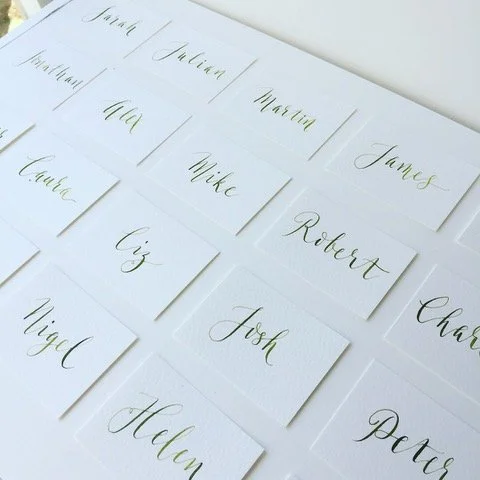 Sarah
Julian
Martin
James
Jonathan
Alex
Mike
Robert
Laura
Liz
Josh
Nigel
Helen
Peter